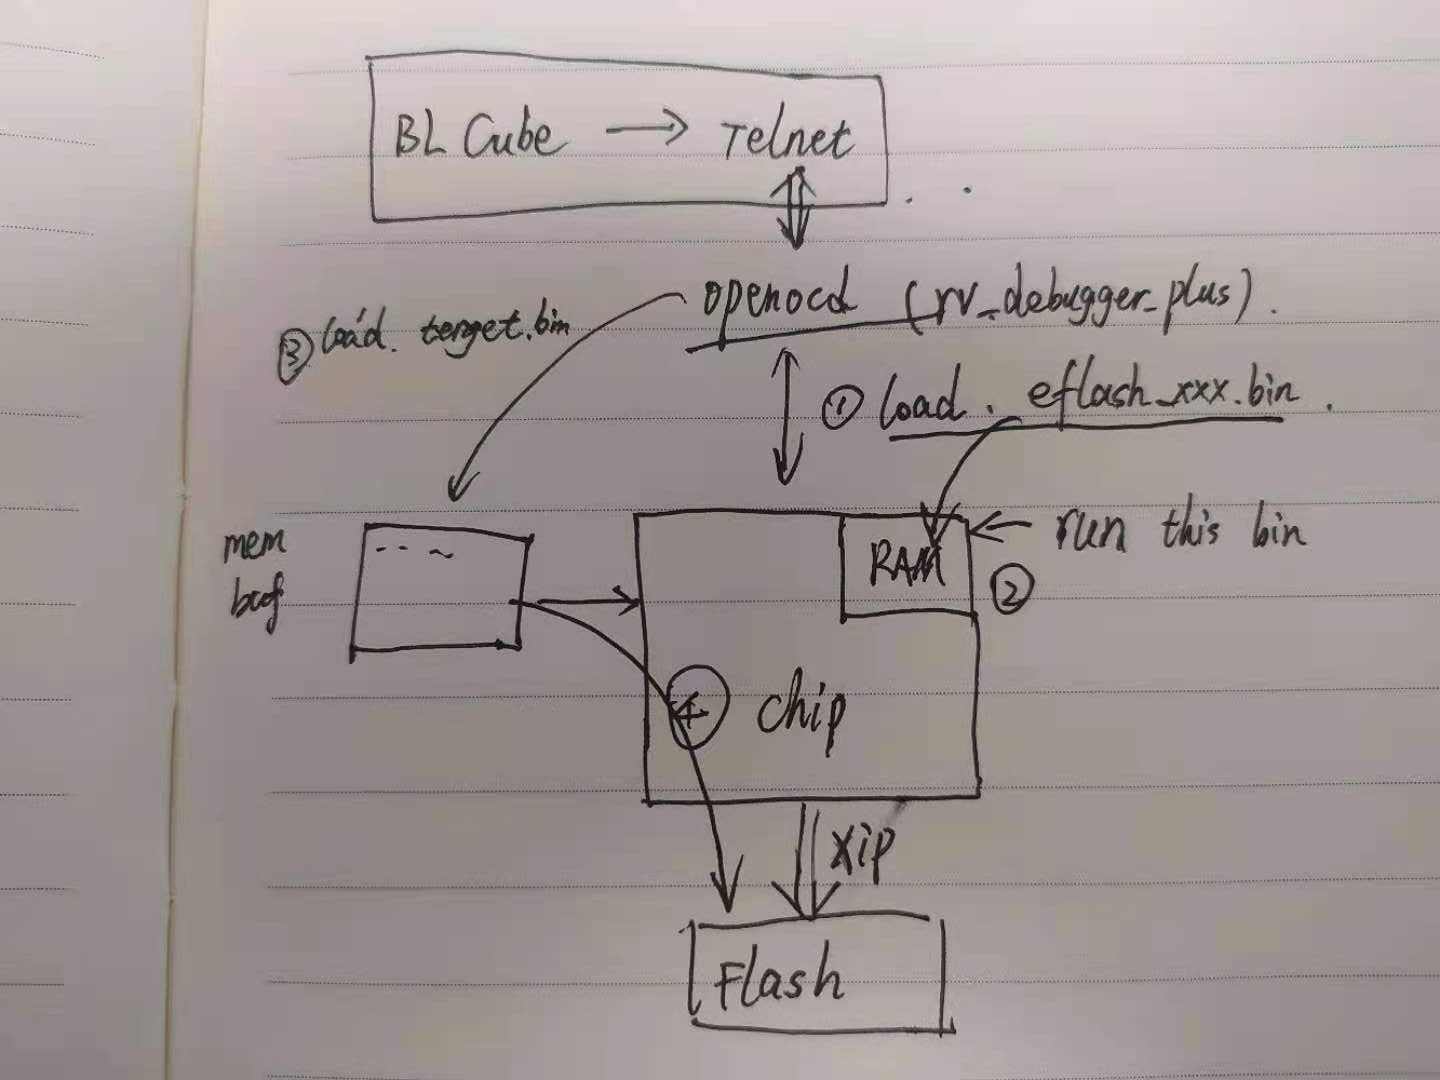 BL Cube → Telnet
openocd (rv_debugger_plus).
③ load. terget.bin
① load. eflash_xxx.bin.
mem
buf
RAM
← run this bin
②
④
chip
xip
Flash